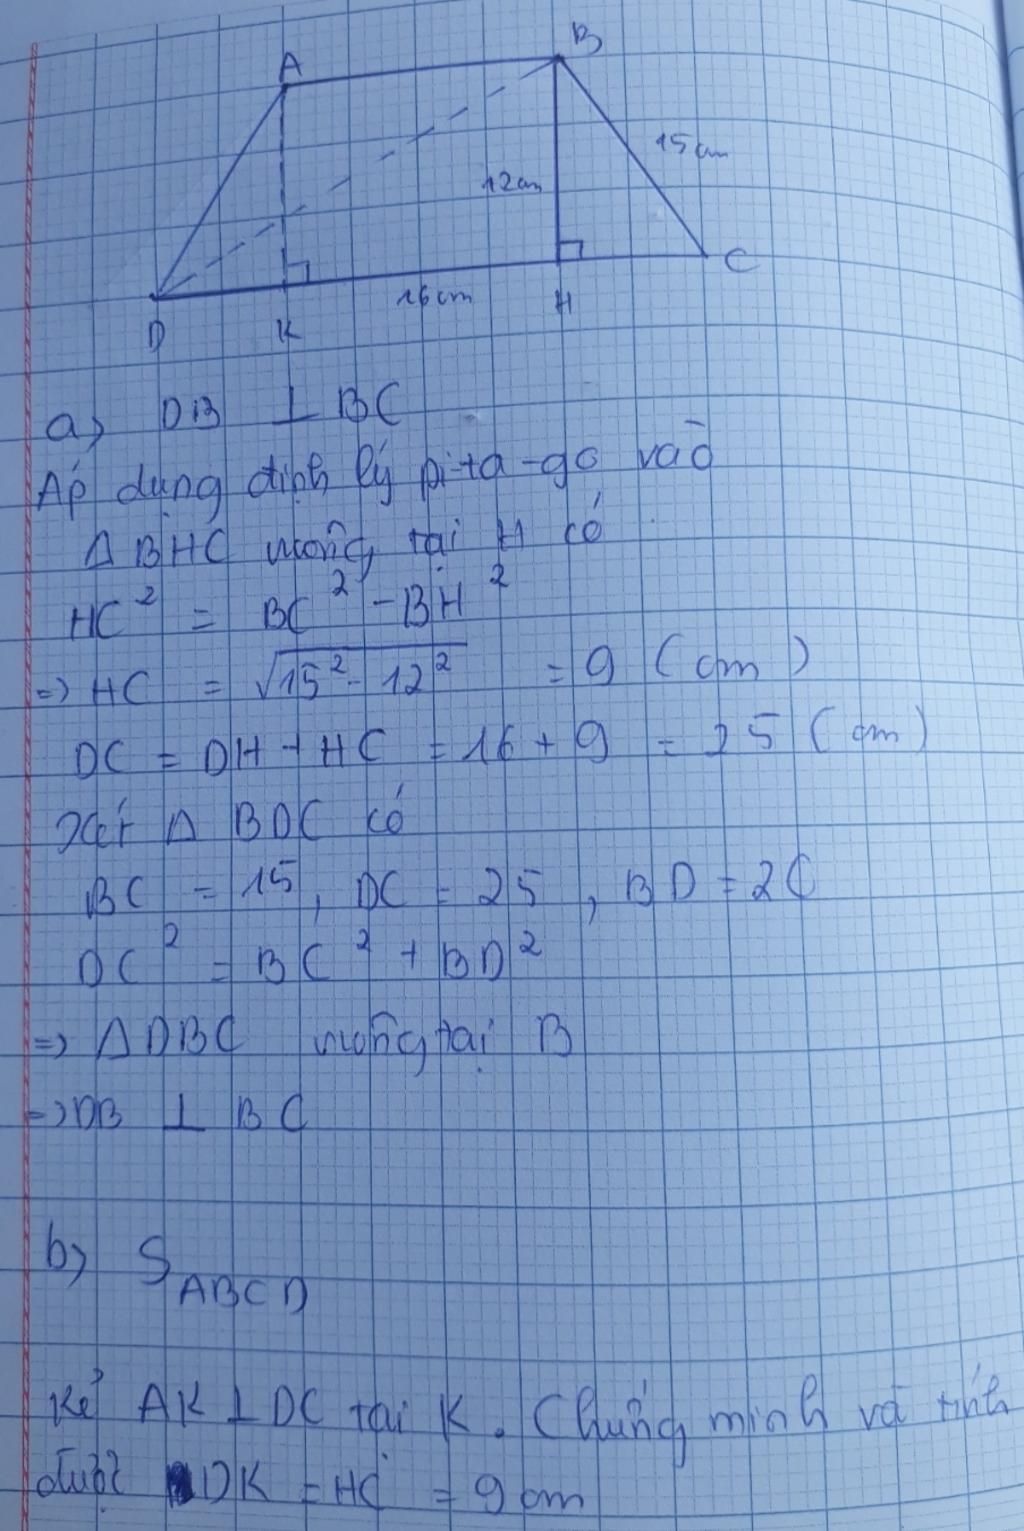 A
B
15cm
12cm
C
16cm
D
K
H
a) DB ⊥ BC
Áp dụng định lý pi-ta-go vào
Δ BHC vuông tại H có
HC² = BC² - BH²
=> HC = √15² - 12² = 9 (cm)
DC = DH + HC = 16 + 9 = 25 (cm)
Xét Δ BDC có
BC = 15, DC = 25, BD = 20
DC² = BC² + BD²
=> Δ DBC vuông tại B
=> DB ⊥ BC
b) S ABCD
Kẻ AK ⊥ DC tại K. Chứng minh và tính
được DK = HC = 9 cm